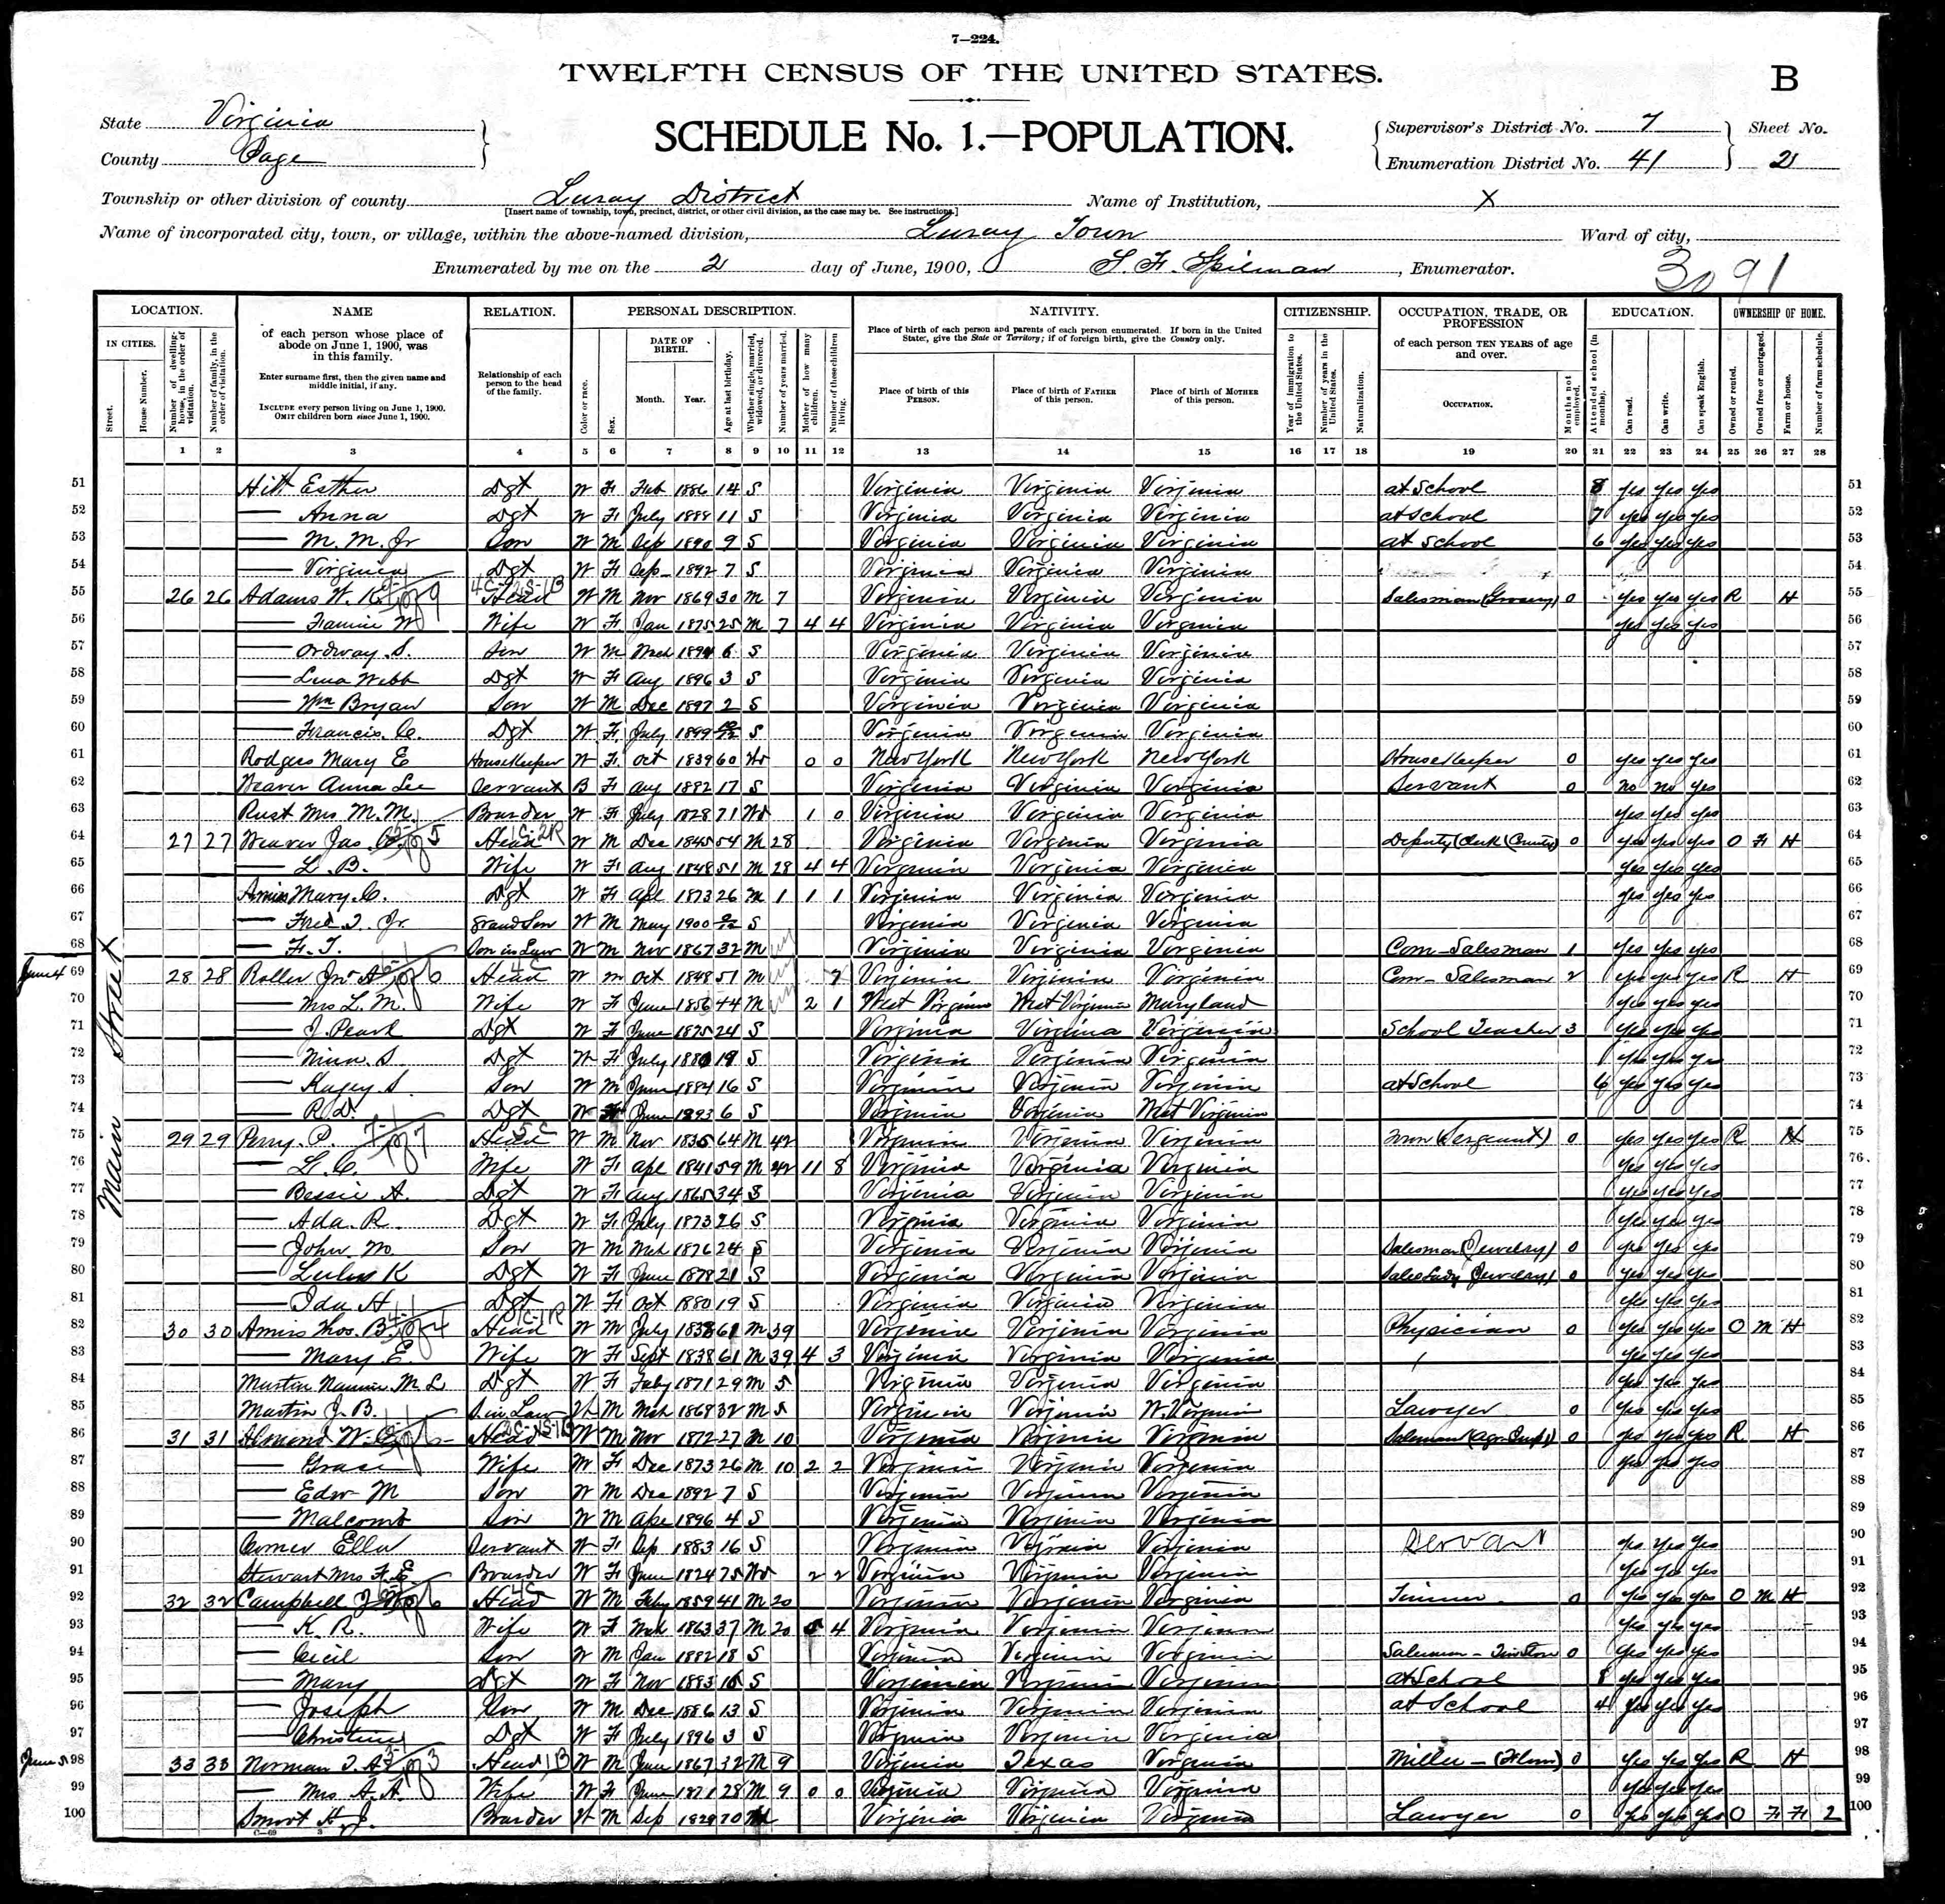 7—224.
TWELFTH CENSUS OF THE UNITED STATES.
B
State Virginia
County Page
SCHEDULE No. 1.—POPULATION.
Supervisor's District No. 7
Enumeration District No. 41
Sheet No.
2
Township or other division of county Luray District
[Insert name of township, town, precinct, district, or other civil division, as the case may be. See instructions.]
Name of Institution, X
Name of incorporated city, town, or village, within the above-named division, Luray Town
Ward of city,
Enumerated by me on the 2 day of June, 1900, S. F. Spilman, Enumerator.
3091
LOCATION. NAME RELATION. PERSONAL DESCRIPTION. NATIVITY. CITIZENSHIP. OCCUPATION, TRADE, OR PROFESSION EDUCATION. OWNERSHIP OF HOME.
IN CITIES.
Street.
House Number.
Number of dwelling-house, in the order of visitation.
Number of family, in the order of visitation.
of each person whose place of abode on June 1, 1900, was in this family.
Enter surname first, then the given name and middle initial, if any.
INCLUDE every person living on June 1, 1900.
OMIT children born since June 1, 1900.
Relationship of each person to the head of the family.
Color or race.
Sex.
DATE OF BIRTH.
Month. Year.
Age at last birthday.
Whether single, married, widowed, or divorced.
Number of years married.
Mother of how many children.
Number of these children living.
Place of birth of each person and parents of each person enumerated. If born in the United States, give the State or Territory; if of foreign birth, give the Country only.
Place of birth of this PERSON.
Place of birth of FATHER of this person.
Place of birth of MOTHER of this person.
Year of immigration to the United States.
Number of years in the United States.
Naturalization.
of each person TEN YEARS of age and over.
OCCUPATION.
Months not employed.
Attended school (in months).
Can read.
Can write.
Can speak English.
Owned or rented.
Owned free or mortgaged.
Farm or house.
Number of farm schedule.
1 2 3 4 5 6 7 8 9 10 11 12 13 14 15 16 17 18 19 20 21 22 23 24 25 26 27 28
Main Street
51 Hitt Esther Dgt W F Feb 1886 14 S Virginia Virginia Virginia at School 8 yes yes yes 51
52 — Anna Dgt W F July 1888 11 S Virginia Virginia Virginia at school 7 yes yes yes 52
53 — M. M. Jr Son W M Sep 1890 9 S Virginia Virginia Virginia at School 6 yes yes yes 53
54 — Virginia Dgt W F Sep 1892 7 S Virginia Virginia Virginia 54
55 26 26 Adams W. Head W M Nov 1869 30 M 7 Virginia Virginia Virginia Salesman (Grocery) 0 yes yes yes R H 55
56 — Fannie W Wife W F Jan 1875 25 M 7 4 4 Virginia Virginia Virginia yes yes yes 56
57 — Ordway S. Son W M Mch 1894 6 S Virginia Virginia Virginia 57
58 — Lena Webb Dgt W F Aug 1896 3 S Virginia Virginia Virginia 58
59 — Wm Bryan Son W M Dec 1897 2 S Virginia Virginia Virginia 59
60 — Francis C. Dgt W F July 1899 S Virginia Virginia Virginia 60
61 Rodgers Mary E Housekeeper W F Oct 1839 60 Wd 0 0 New York New York New York Housekeeper 0 yes yes yes 61
62 Weaver Anna Lee Servant B F Aug 1882 17 S Virginia Virginia Virginia Servant 0 no no yes 62
63 Rust Mrs M. M. Boarder W F July 1828 71 Wd 1 0 Virginia Virginia Virginia yes yes yes 63
64 27 27 Weaver Jas. Head W M Dec 1845 54 M 28 Virginia Virginia Virginia Deputy Clerk (County) 0 yes yes yes O F H 64
65 — L. B. Wife W F Aug 1848 51 M 28 4 4 Virginia Virginia Virginia yes yes yes 65
66 Amiss Mary C. Dgt W F Apl 1873 26 M 1 1 1 Virginia Virginia Virginia yes yes yes 66
67 — Fred T. Jr. Grand Son W M May 1900 S Virginia Virginia Virginia 67
68 — F. T. Son in Law W M Nov 1867 32 M Virginia Virginia Virginia Com—Salesman 1 yes yes yes 68
June 4 69 28 28 Roller Jno Head W M Oct 1848 51 M Virginia Virginia Virginia Com—Salesman 2 yes yes yes R H 69
70 — Mrs L. M. Wife W F June 1856 44 M 2 1 West Virginia West Virginia Maryland yes yes yes 70
71 — J. Pearl Dgt W F June 1875 24 S Virginia Virginia Virginia School Teacher 3 yes yes yes 71
72 — Nina S. Dgt W F July 1880 19 S Virginia Virginia Virginia yes yes yes 72
73 — Kagey S. Son W M June 1884 16 S Virginia Virginia Virginia at School 6 yes yes yes 73
74 — R. D. Dgt W F June 1893 6 S Virginia Virginia West Virginia 74
75 29 29 Perry P. Head W M Nov 1835 64 M 42 Virginia Virginia Virginia Town (Sergeant) 0 yes yes yes R H 75
76 — L. C. Wife W F Apl 1841 59 M 42 11 8 Virginia Virginia Virginia yes yes yes 76
77 — Bessie A. Dgt W F Aug 1865 34 S Virginia Virginia Virginia yes yes yes 77
78 — Ada R. Dgt W F July 1873 26 S Virginia Virginia Virginia yes yes yes 78
79 — John M. Son W M Mch 1876 24 S Virginia Virginia Virginia Salesman (Jewelry) 0 yes yes yes 79
80 — K Dgt W F June 1878 21 S Virginia Virginia Virginia Saleslady Jewelry) 0 yes yes yes 80
81 — Ida H Dgt W F Oct 1880 19 S Virginia Virginia Virginia yes yes yes 81
82 30 30 Amiss Thos. B. Head W M July 1838 61 M 39 Virginia Virginia Virginia Physician 0 yes yes yes O M H 82
83 — Mary E. Wife W F Sept 1838 61 M 39 4 3 Virginia Virginia Virginia yes yes yes 83
84 Martin Nannie M L Dgt W F Feby 1871 29 M 5 Virginia Virginia Virginia yes yes yes 84
85 Martin J. B. S. in Law W M Mch 1868 32 M 5 Virginia Virginia W. Virginia Lawyer 0 yes yes yes 85
86 31 31 Almond W. Head W M Nov 1872 27 M 10 Virginia Virginia Virginia Salesman 0 yes yes yes R H 86
87 — Grace Wife W F Dec 1873 26 M 10 2 2 Virginia Virginia Virginia yes yes yes 87
88 — Edw M Son W M Dec 1892 7 S Virginia Virginia Virginia 88
89 — Malcomb Son W M Ape 1896 4 S Virginia Virginia Virginia 89
90 Comer Ella Servant W F Sep 1883 16 S Virginia Virginia Virginia Servant yes yes yes 90
91 Stewart Mrs F. E Boarder W F June 1824 75 Wd 2 2 Virginia Virginia Virginia yes yes yes 91
92 32 32 Campbell J Head W M Feby 1859 41 M 20 Virginia Virginia Virginia Tinner 0 yes yes yes O M H 92
93 — K. R. Wife W F Mch 1863 37 M 20 4 Virginia Virginia Virginia yes yes yes 93
94 — Cecil Son W M Jan 1882 18 S Virginia Virginia Virginia Salesman — 0 yes yes yes 94
95 — Mary Dgt W F Nov 1883 16 S Virginia Virginia Virginia at School 8 yes yes yes 95
96 — Joseph Son W M Dec 1886 13 S Virginia Virginia Virginia at School 4 yes yes yes 96
97 — Christine Dgt W F July 1896 3 S Virginia Virginia Virginia 97
June 5 98 33 33 Norman T. A Head W M June 1867 32 M 9 Virginia Texas Virginia Miller — (Flour) 0 yes yes yes R H 98
99 — Mrs A. A. Wife W F June 1871 28 M 9 0 0 Virginia Virginia Virginia yes yes yes 99
100 Smoot H. J. Boarder W M Sep 1829 70 Virginia Virginia Virginia Lawyer 0 yes yes yes O F F 2 100